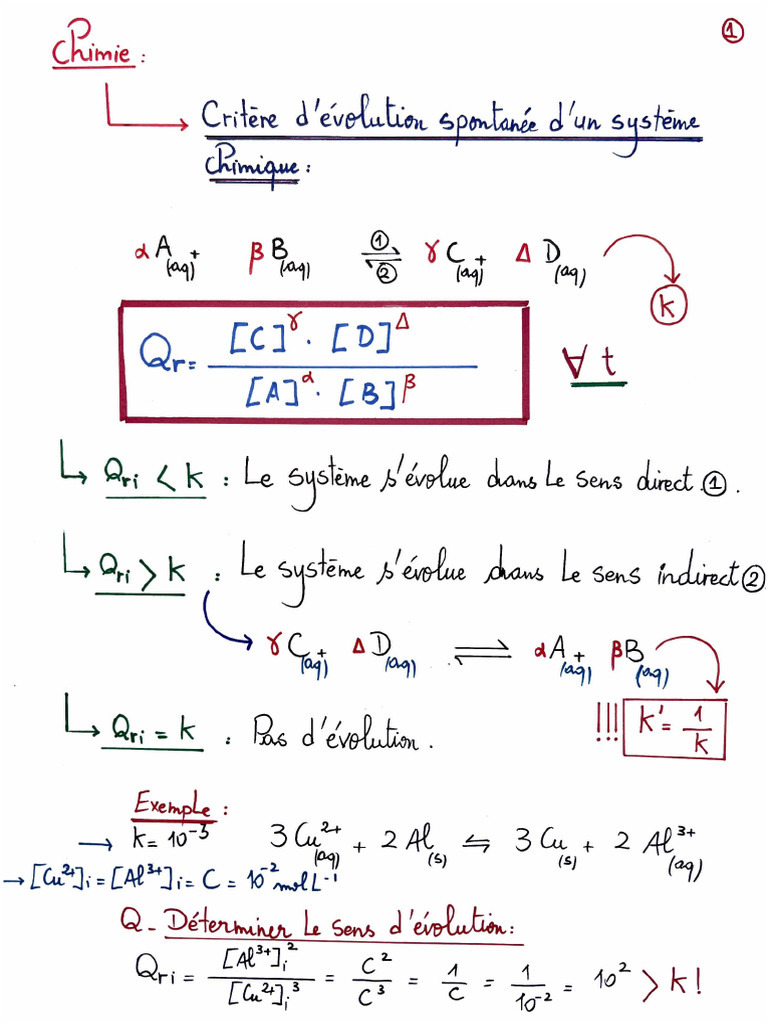 ①
Chimie :
Critère d'évolution spontanée d'un système
chimique :
α A(aq) + β B(aq) ①⇌② γ C(aq) + Δ D(aq)
K
Qr = [C]^γ . [D]^Δ / [A]^α . [B]^β ∀ t
↳ Qri < K : Le système s'évolue dans le sens direct ①.
↳ Qri > K : Le système s'évolue dans le sens indirect ②
γ C(aq) + Δ D(aq) ⇌ α A(aq) + β B(aq)
↳ Qri = K : Pas d'évolution. !!! K' = 1/K
Exemple :
→ K = 10⁻³ 3 Cu²⁺(aq) + 2 Al(s) ⇋ 3 Cu(s) + 2 Al³⁺(aq)
→ [Cu²⁺]i = [Al³⁺]i = C = 10⁻² mol L⁻¹
Q - Déterminer le sens d'évolution :
Qri = [Al³⁺]i² / [Cu²⁺]i³ = C² / C³ = 1/C = 1/10⁻² = 10² > K !